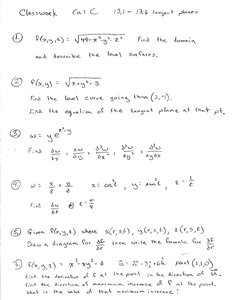 Classwork Cal C 12.1 - 12.6 tangent planes
① f(x,y,z) = √(48-x²-y²-z²) Find the domain
and describe the level surfaces.
② f(x,y) = √(x+y²-3)
Find the level curve going thru (3,-1).
Find the equation of the tangent plane at that pt.
③ w = y e^(x²-y)
Find ∂w/∂x , ∂w/∂y , ∂²w/∂x² , ∂²w/∂y² , ∂²w/∂y∂x
④ w = x/z + y/z x = cos²t , y = sin²t , z = 1/t
Find @ t = π/4
⑤ Given f(x,y,z) where x(r,s,t), y(r,s,t), z(r,s,t)
Draw a diagram for then write the formula for
f(x,y,z) = x³-xy²-z point (1,1,0)
Find the derivative of f at the point in the direction of
Find the direction of maximum increase of f at the point.
What is the value of that maximum increase?